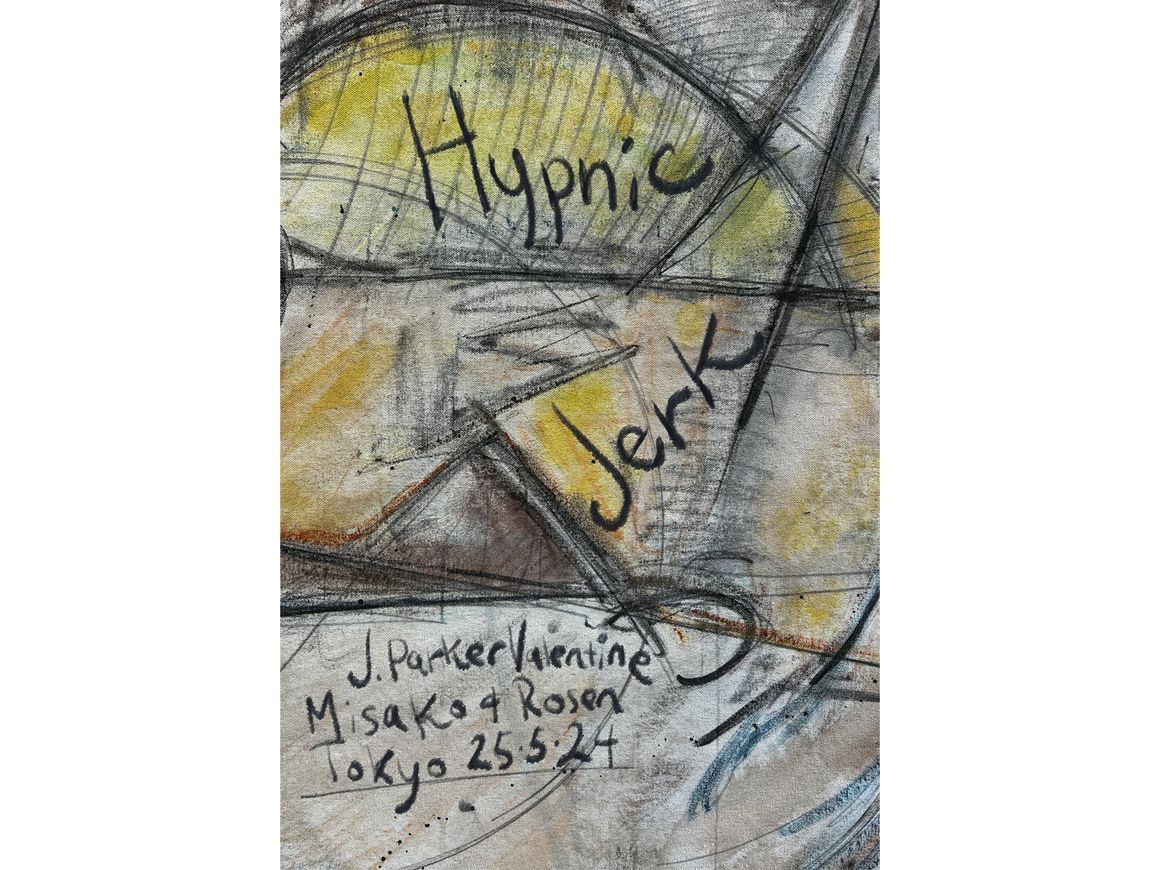 Hypnic
Jerk
J. Parker Valentine
Misako & Rosen
Tokyo 25.5.24